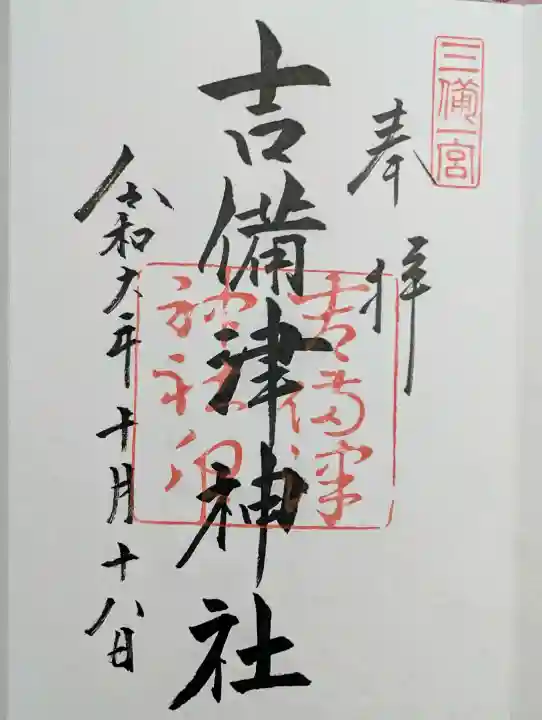 三備一宮
奉拝
吉備津神社
吉備津
神社印
令和六年十月十八日